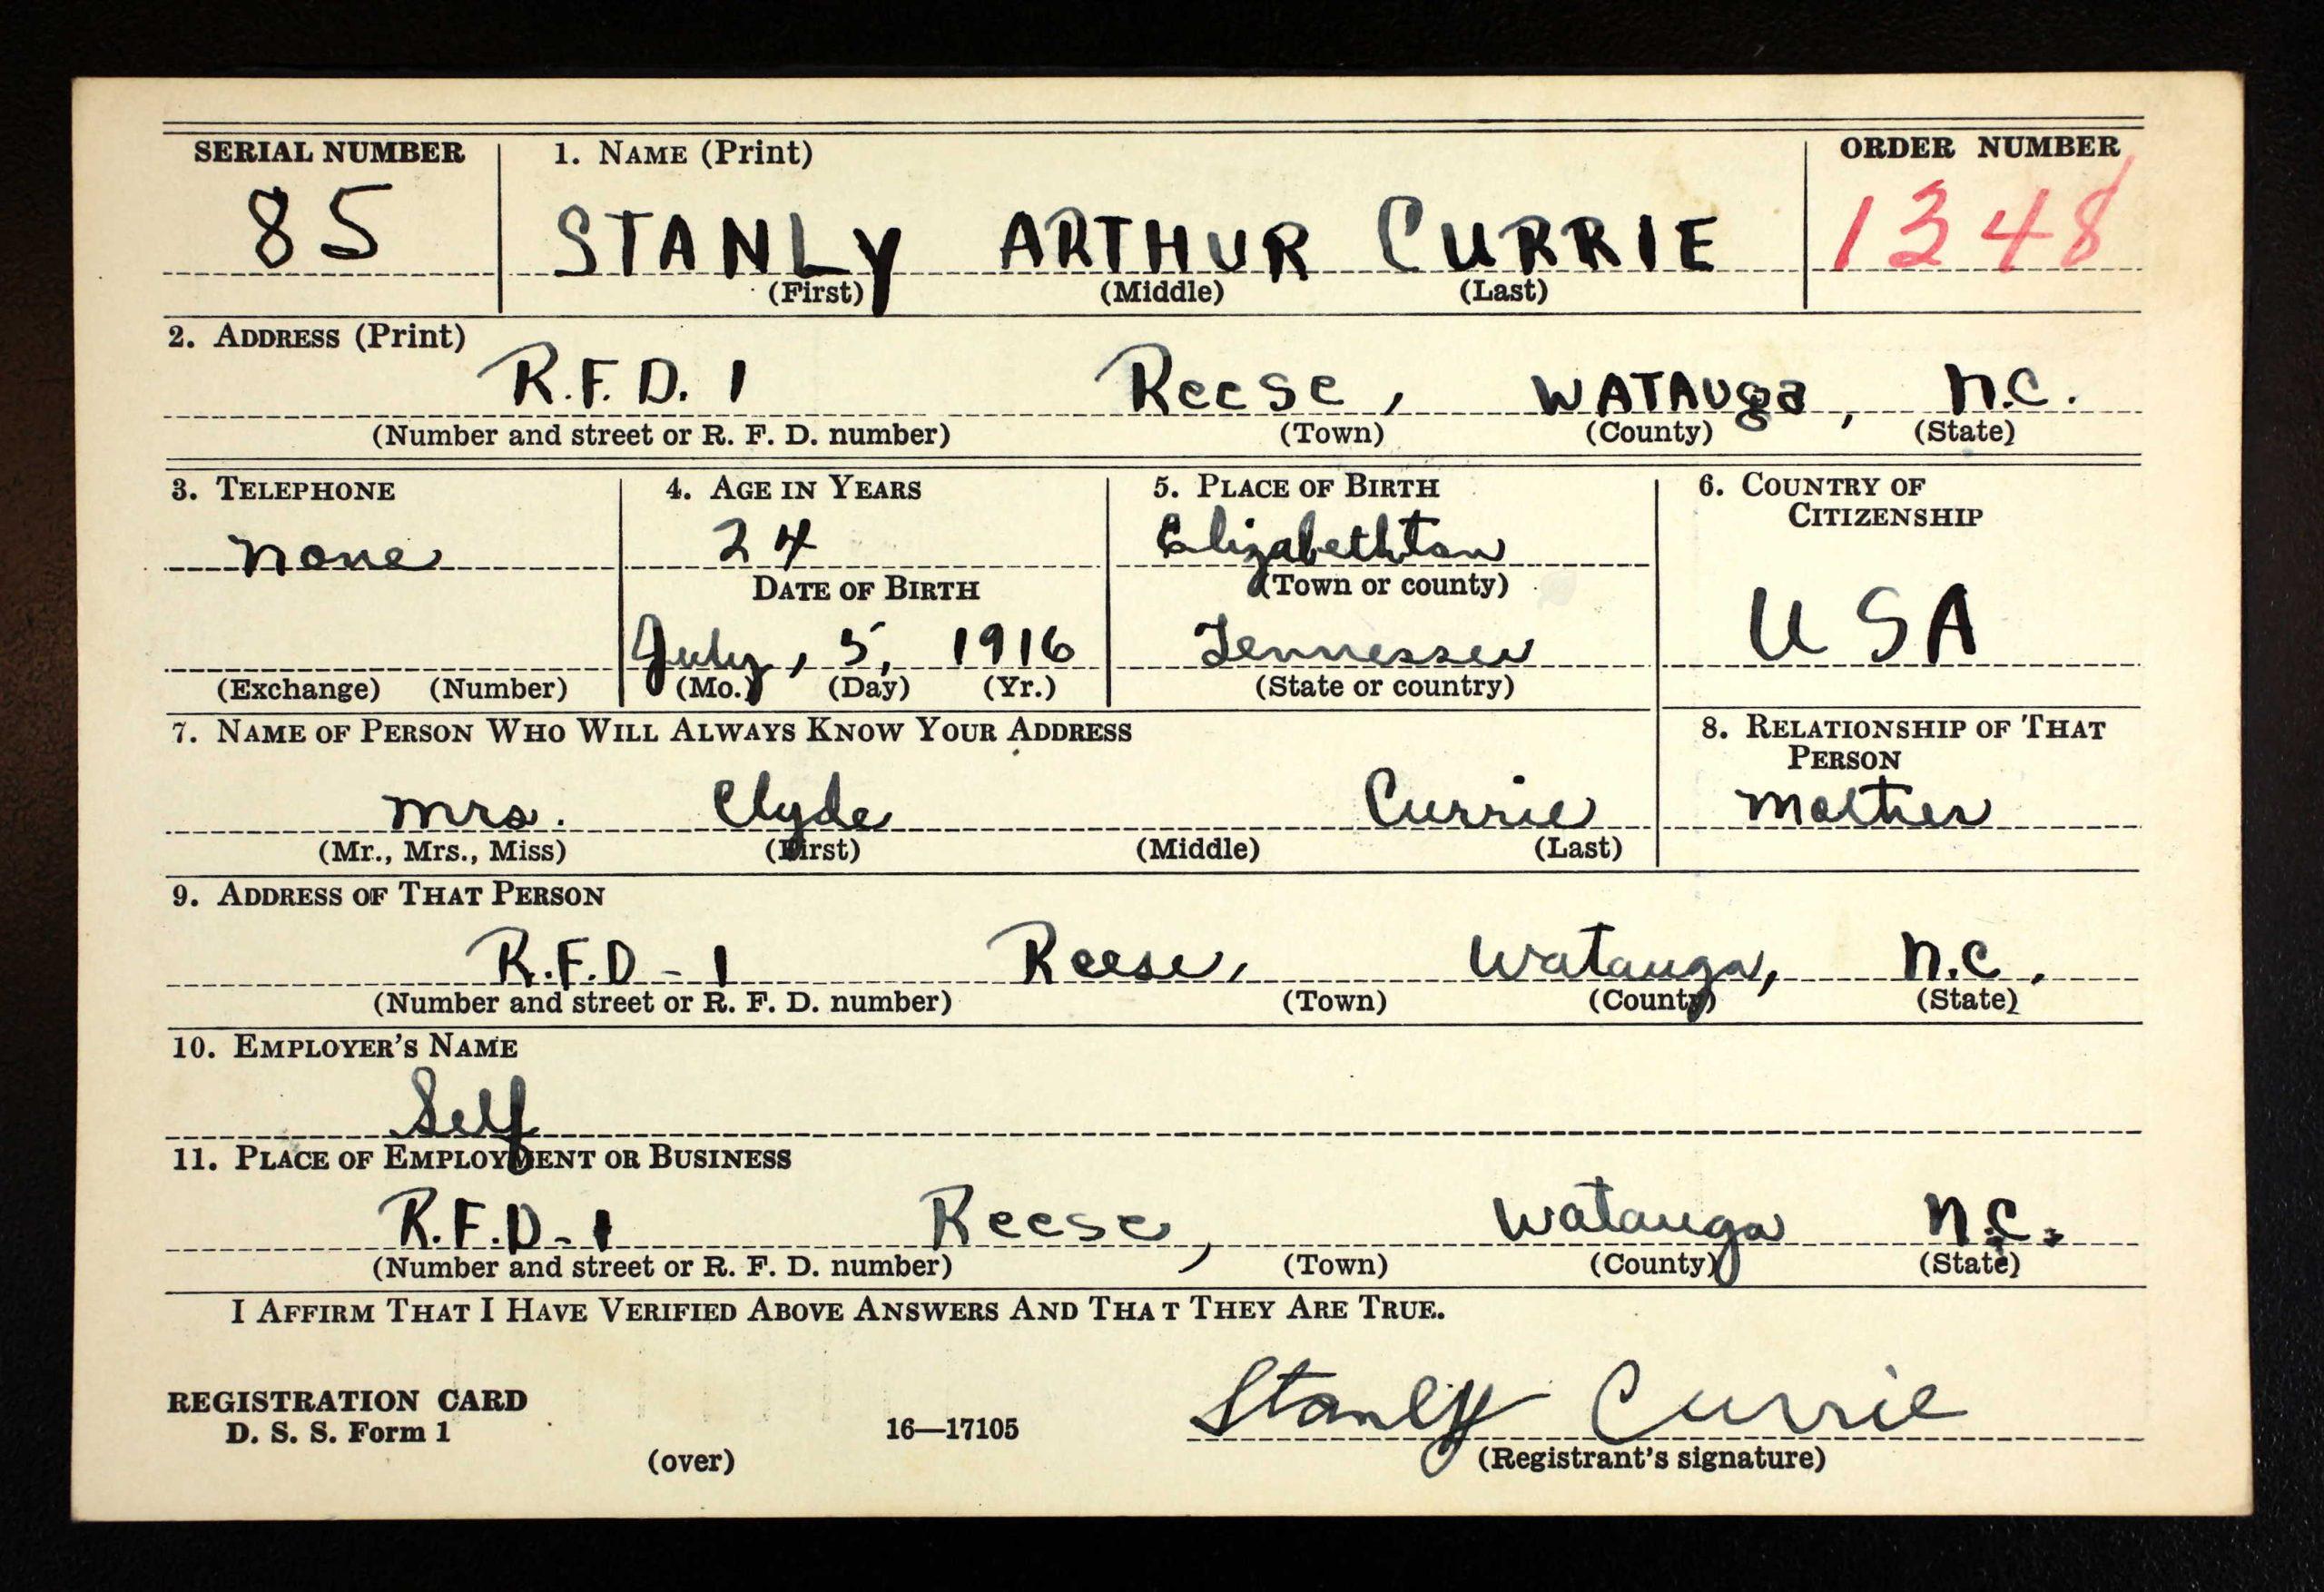 SERIAL NUMBER 1. NAME (Print) ORDER NUMBER
85 STANLY ARTHUR CURRIE 1348
(First) (Middle) (Last)
2. ADDRESS (Print)
R.F.D. 1 Reese, WATAUga, N.C.
(Number and street or R. F. D. number) (Town) (County) (State)
3. TELEPHONE 4. AGE IN YEARS 5. PLACE OF BIRTH 6. COUNTRY OF
CITIZENSHIP
none 24 Elizabethton
DATE OF BIRTH (Town or county)
July, 5, 1916 Tennessee USA
(Exchange) (Number) (Mo.) (Day) (Yr.) (State or country)
7. NAME OF PERSON WHO WILL ALWAYS KNOW YOUR ADDRESS 8. RELATIONSHIP OF THAT
PERSON
mrs. Clyde Currie Mother
(Mr., Mrs., Miss) (First) (Middle) (Last)
9. ADDRESS OF THAT PERSON
R.F.D-1 Reese, Watauga, N.C.
(Number and street or R. F. D. number) (Town) (County) (State)
10. EMPLOYER'S NAME
Self
11. PLACE OF EMPLOYMENT OR BUSINESS
R.F.D-1 Reese, Watauga N.C.
(Number and street or R. F. D. number) (Town) (County) (State)
I AFFIRM THAT I HAVE VERIFIED ABOVE ANSWERS AND THAT THEY ARE TRUE.
REGISTRATION CARD
D. S. S. Form 1 16—17105 Stanly Currie
(over) (Registrant's signature)